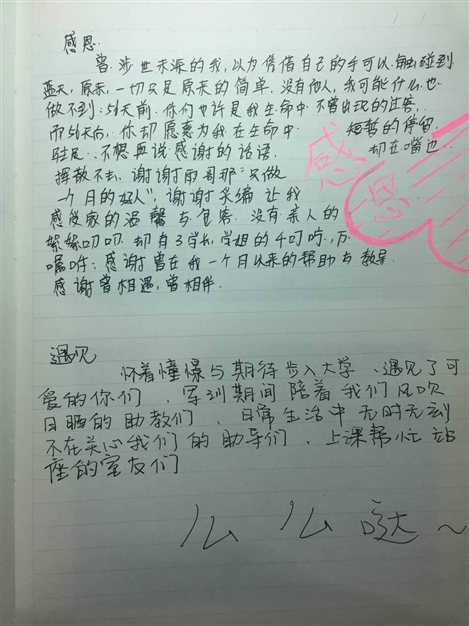 感恩.
曾涉世未深的我,以为凭借自己的手可以触碰到
蓝天,原来,一切只是原来的简单.没有你们,我可能什么也
做不到;5h天前.你们也许是我生命中不曾出现的过客.
而5h天后,你却愿意为我在生命中 短暂的停留.
驻足..不想再说感谢的话语. 却在嘴边
挥散不去,谢谢雨哥那"只做
一个月的好人",谢谢 让我
感受家的温馨与包容.没有亲人的
絮絮叨叨,却有了学长,学姐的千叮咛,万
嘱咐;感谢曾在我一个月以来的帮助与教导.
感谢曾相遇,曾相伴.
感恩
遇见
怀着憧憬与期待步入大学、遇见了可
爱的你们、军训期间陪着我们风吹
日晒的助教们、日常生活中无时无刻
不在关心我们的助导们、上课帮忙站
座的室友们
么么哒~